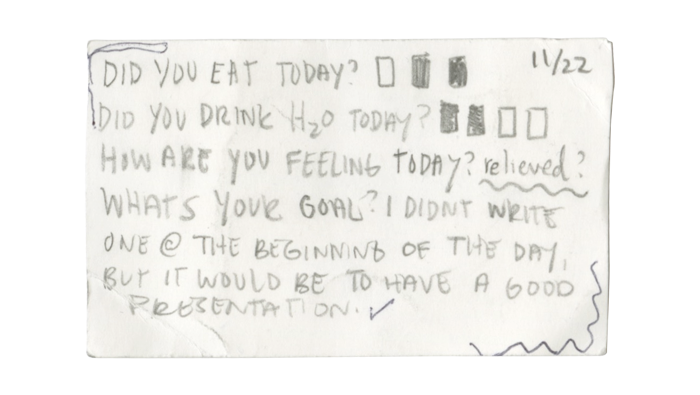 DID YOU EAT TODAY? 11/22
DID YOU DRINK H₂O TODAY?
HOW ARE YOU FEELING TODAY? relieved?
WHATS YOUR GOAL? I DIDNT WRITE
ONE @ THE BEGINNING OF THE DAY,
BUT IT WOULD BE TO HAVE A GOOD
PRESENTATION. ✓